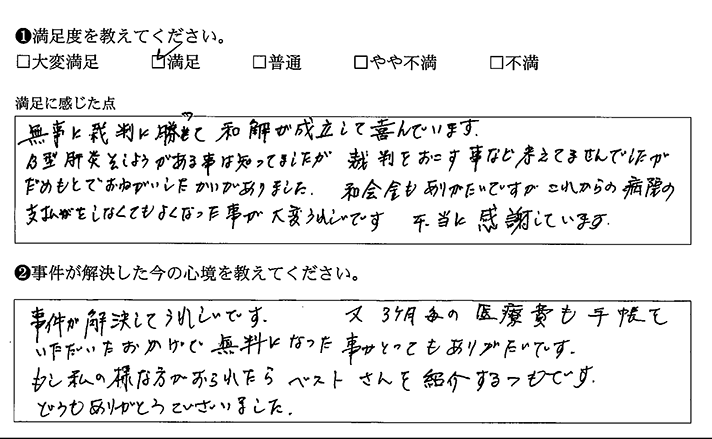 ❶満足度を教えてください。
□大変満足 ☑満足 □普通 □やや不満 □不満
満足に感じた点
無事に裁判に勝って和解が成立して喜んでいます。
B型肝炎そしようがある事は知ってましたが 裁判をおこす事など考えてませんでしたが
だめもとでおねがいしたかいがありました。 和会金もありがたいですがこれからの病院の
支払がをしなくてもよくなった事が大変うれしいです 本当に感謝しています。
❷事件が解決した今の心境を教えてください。
事件が解決してうれしいです。 又3ケ月毎の医療費も手帳を
いただいたおかげで無料になった事がとってもありがたいです。
もし私の様な方がおられたらベストさんを紹介するつもです。
どうもありがとうございました。